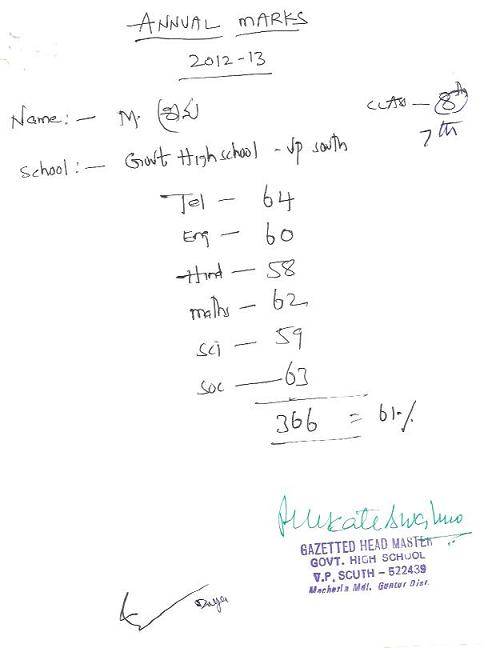 ANNUAL MARKS
2012-13
Name:- M. శ్రీను
CLASS - 8th
7th
School:- Govt High school - VP South
Tel - 64
Eng - 60
Hind - 58
maths - 62
sci - 59
soc - 63
366 = 61%
GAZETTED HEAD MASTER
GOVT. HIGH SCHOOL
V.P. SOUTH - 522439
Macherla Mdl. Guntur Dist.